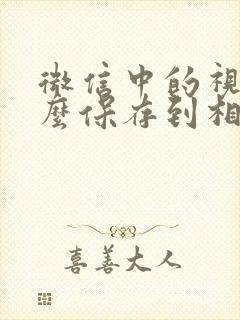 微信中的視
麼保存到相
喜善大人